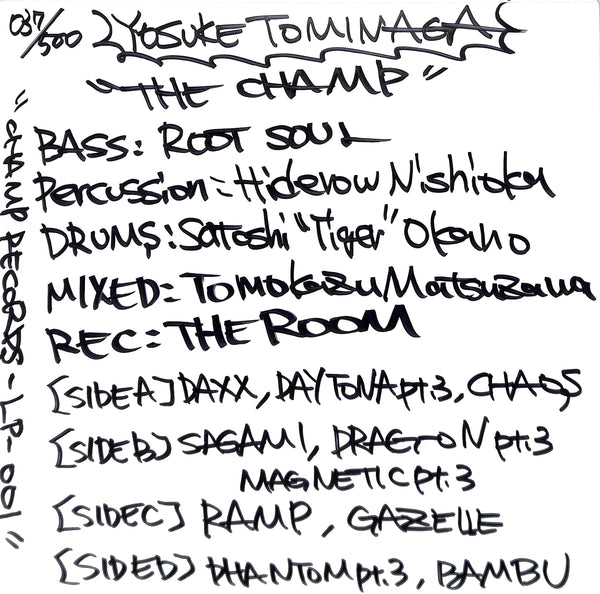 037/500
YOSUKE TOMINAGA
"THE CHAMP"
BASS: ROOT SOUL
Percussion: Hiderow Nishioka
DRUMS: Satoshi "Tiger" Okano
MIXED: Tomokazu Matsuzawa
REC: THE ROOM
[SIDE A] DAXX, DAYTONA pt.3, CHAOS
[SIDE B] SAGAMI, DRAGON pt.3
MAGNETIC pt.3
[SIDE C] RAMP, GAZELLE
[SIDE D] PHANTOM pt.3, BAMBU
"CHAMP RECORDS-LP-001"